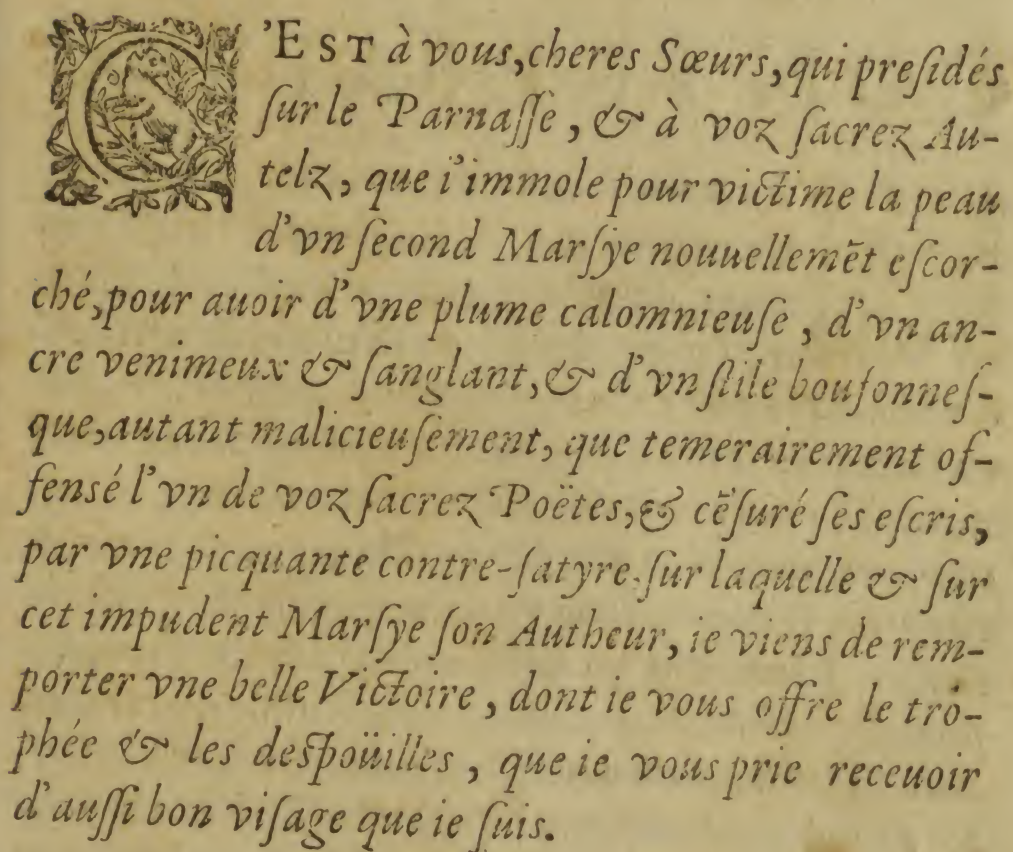 C'EST à vous, cheres Sœurs, qui preſidés
ſur le Parnaſſe, & à voz ſacrez Au-
telz, que i'immole pour victime la peau
d'vn ſecond Marſye nouuellemẽt eſcor-
ché, pour auoir d'vne plume calomnieuſe, d'vn an-
cre venimeux & ſanglant, & d'vn ſtile boufonneſ-
que, autant malicieuſement, que temerairement of-
fensé l'vn de voz ſacrez Poëtes, & cẽſuré ſes eſcris,
par vne picquante contre-ſatyre. ſur laquelle & ſur
cet impudent Marſye ſon Autheur, ie viens de rem-
porter vne belle Victoire, dont ie vous offre le tro-
phée & les deſpoüilles, que ie vous prie receuoir
d'auſſi bon viſage que ie ſuis.